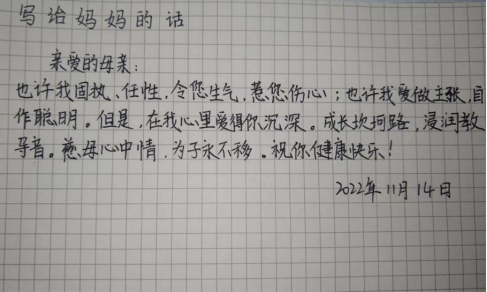 写给妈妈的话
亲爱的母亲：
也许我固执、任性，令您生气，惹您伤心；也许我爱做主张，自
作聪明。但是，在我心里爱得你沉深。成长坎坷路，浸润教
导音。慈母心中情，为子永不移。祝你健康快乐！
2022年11月14日